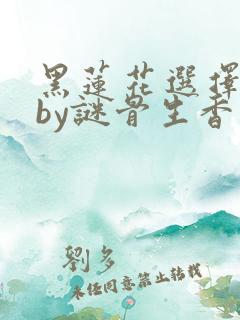 黑蓮花選擇
by謎骨生香
劉多
未經同意禁止轉載